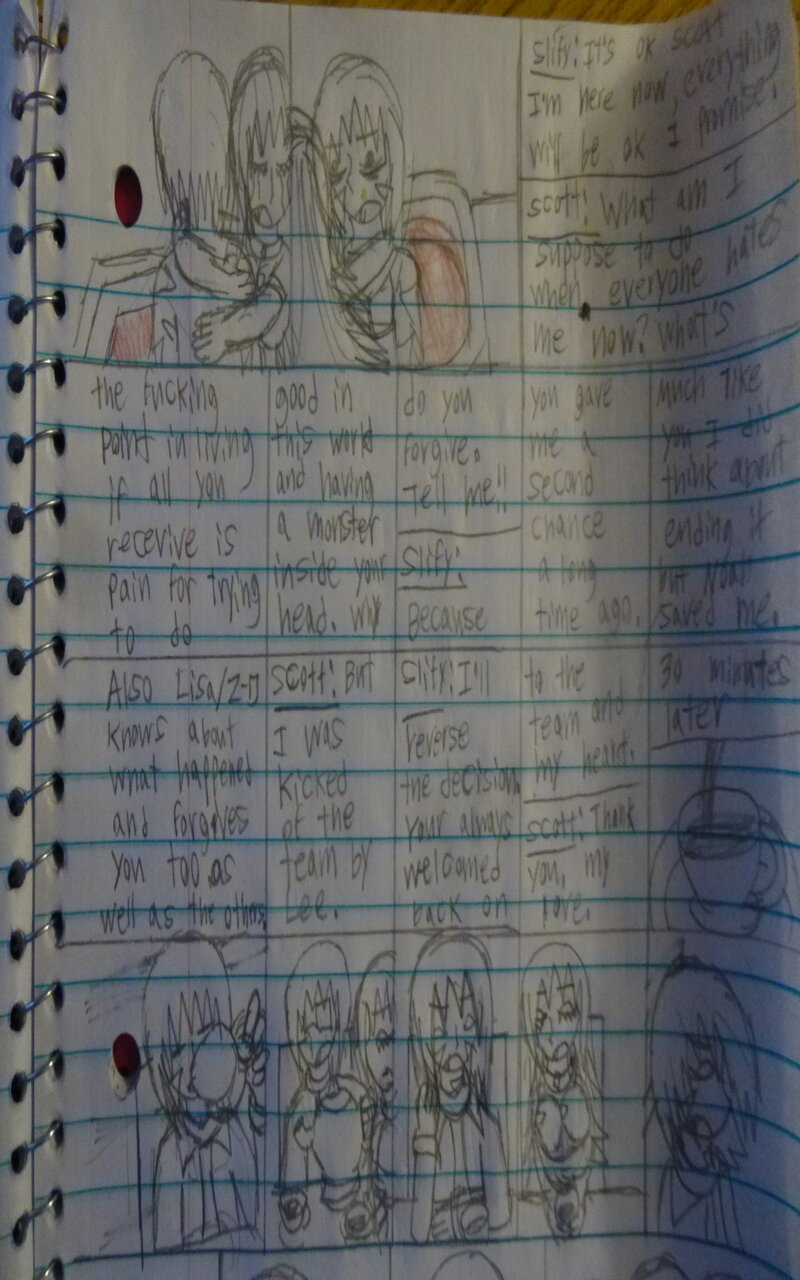 Slify: It's ok scott
I'm here now, everything
will be ok I promise.
scott: What am I
suppose to do
when everyone hates
me now? What's
the fucking
point in living
if all you
recerive is
pain for trying
to do
good in
this world
and having
a monster
inside your
head. Why
do you
forgive.
Tell me!!
Slify:
Because
you gave
me a
second
chance
a long
time ago.
Much like
you I did
think about
ending it
but Noah
saved me.
Also Lisa/Z-D
knows about
what happened
and forgives
you too as
well as the others
Scott: But
I was
kicked
of the
team by
Lee.
Slify: I'll
reverse
the decision.
Your always
welcomed
back on
to the
team and
my heart.
scott: Thank
you, my
love.
30 minutes
later